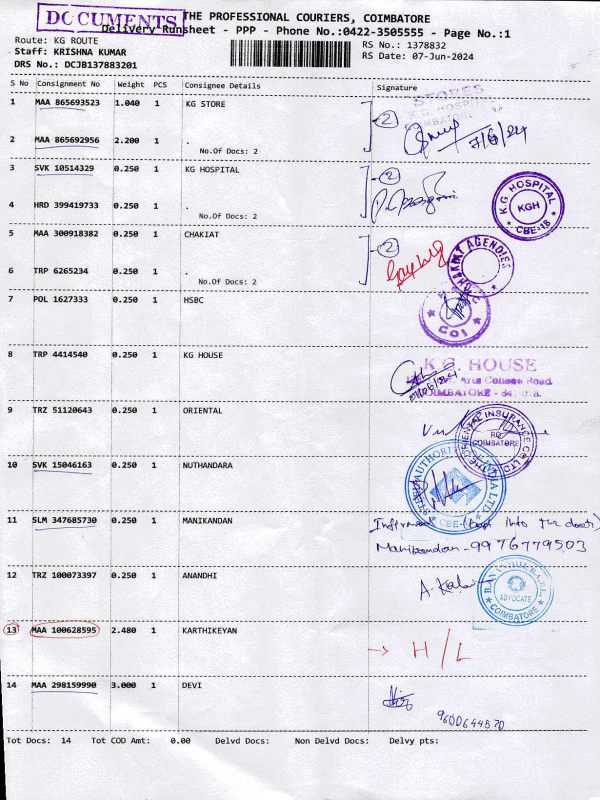 DOCUMENTS
THE PROFESSIONAL COURIERS, COIMBATORE
Delivery Runsheet - PPP - Phone No.:0422-3505555 - Page No.:1
Route: KG ROUTE
RS No.: 1378832
Staff: KRISHNA KUMAR
RS Date: 07-Jun-2024
DRS No.: DCJB137883201
S No Consignment No Weight PCS Consignee Details Signature
1 MAA 865693523 1.040 1 KG STORE
STORES
K.G. HOSPITAL
COIMBATORE
2
7/6/24
2 MAA 865692956 2.200 1 .
No.Of Docs: 2
3 SVK 10514329 0.250 1 KG HOSPITAL
2
K.G HOSPITAL
KGH
CBE-18
4 HRD 399419733 0.250 1 .
No.Of Docs: 2
5 MAA 300918382 0.250 1 CHAKIAT
2
AGENCIES
6 TRP 6265234 0.250 1 .
No.Of Docs: 2
7 POL 1627333 0.250 1 HSBC
8 TRP 4414540 0.250 1 KG HOUSE
K.G. HOUSE
Arts College Road
COIMBATORE - 641 018.
9 TRZ 51120643 0.250 1 ORIENTAL
THE ORIENTAL INSURANCE CO LTD
COIMBATORE
10 SVK 15046163 0.250 1 NUTHANDARA
AUTHORI
LTD
CBE
11 SLM 347685730 0.250 1 MANIKANDAN
into the door)
Manikandan - 9976779503
12 TRZ 100073397 0.250 1 ANANDHI
ADVOCATE
COIMBATORE
13 MAA 100628595 2.480 1 KARTHIKEYAN
→ H/L
14 MAA 298159990 3.000 1 DEVI
9600644570
Tot Docs: 14 Tot COD Amt: 0.00 Delvd Docs: Non Delvd Docs: Delvy pts: